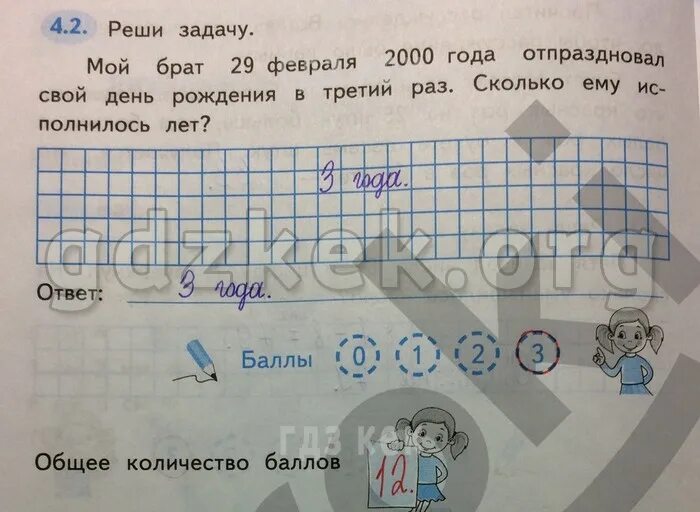 4.2. Реши задачу.
Мой брат 29 февраля 2000 года отпраздновал
свой день рождения в третий раз. Сколько ему ис-
полнилось лет?
3 года.
gdzkek.org
Ответ: 3 года.
Баллы 0 1 2 3
ГДЗ кек
Общее количество баллов 12.